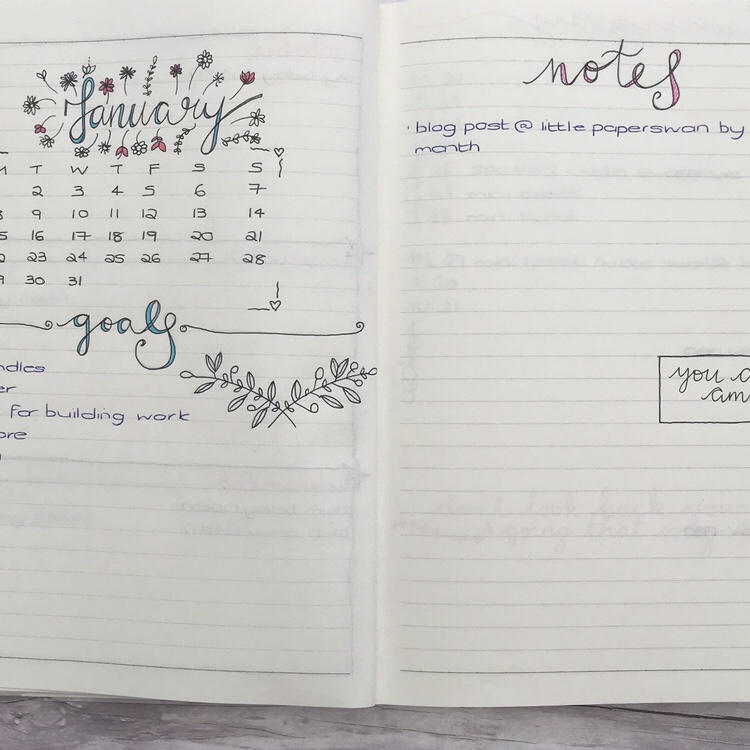 January
T W T F S S
2 3 4 5 6 7
9 10 11 12 13 14
16 17 18 19 20 21
23 24 25 26 27 28
30 31
goals
for building work
notes
· blog post @ little paperswan by
month
you